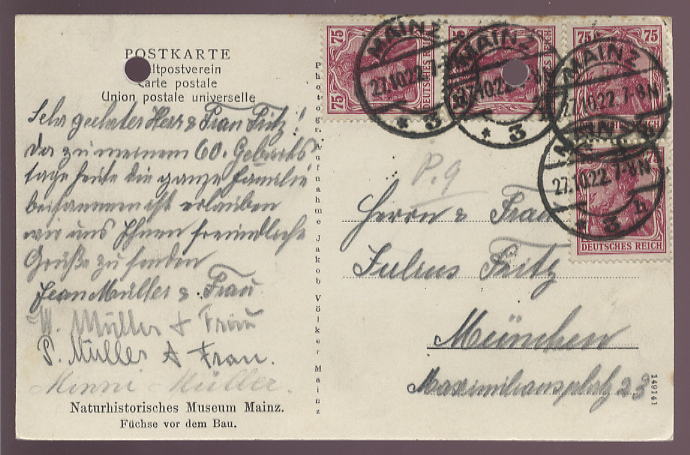 POSTKARTE
ltpostverein
arte postale
Union postale universelle
Sehr geehrter Herr & Frau Fritz!
Da zu meinem 60. Geburts
tage heute die ganze Familie
beisammen ist erlauben
wir uns Ihnen freundliche
Grüße zu senden
Jean Müller & Frau
W. Müller & Frau
P. Müller & Frau.
Minni Müller.
Naturhistorisches Museum Mainz.
Füchse vor dem Bau.
Photogr. Aufnahme Jakob Völker Mainz
75
75
DEUTSCHES
MAINZ
27.10.22. 7-8N
* 3
MAINZ
27.10.22. 7-8N
* 3
75
75
MAINZ
27.10.22. 7-8N
MAINZ
27.10.22. 7-8N
* 3
DEUTSCHES REICH
P. 9
Herrn & Frau
Julius Fritz
München
Maximiliansplatz 23
149141